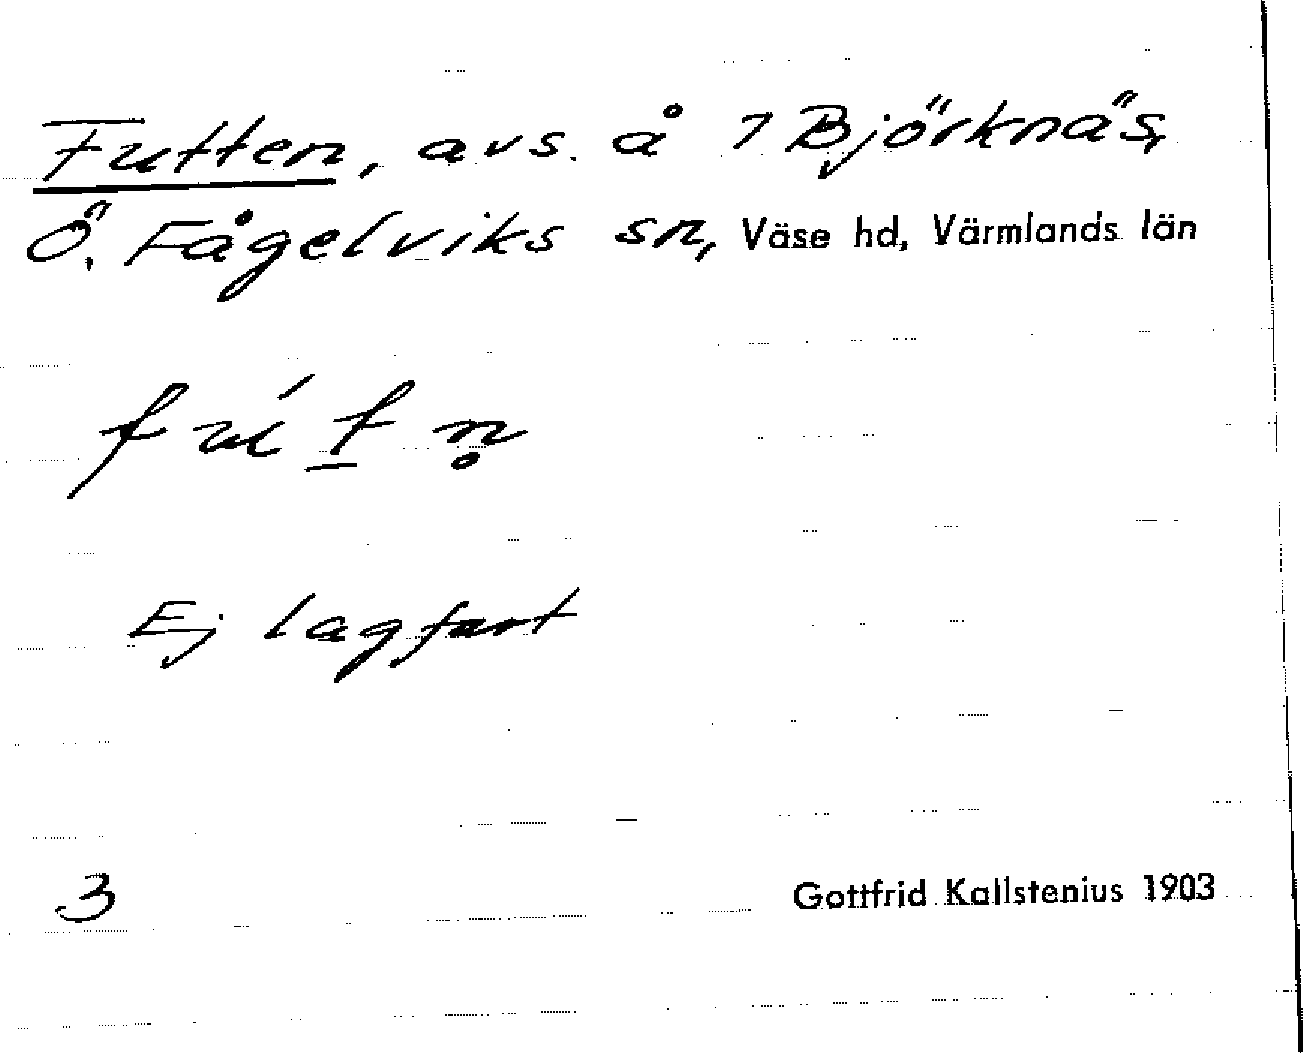 Futten, avs. å 1 Björknäs,
Ö. Fågelviks sn, Väse hd, Värmlands län
fút̠n̥
Ej lagfart
3
Gottfrid Kallstenius 1903